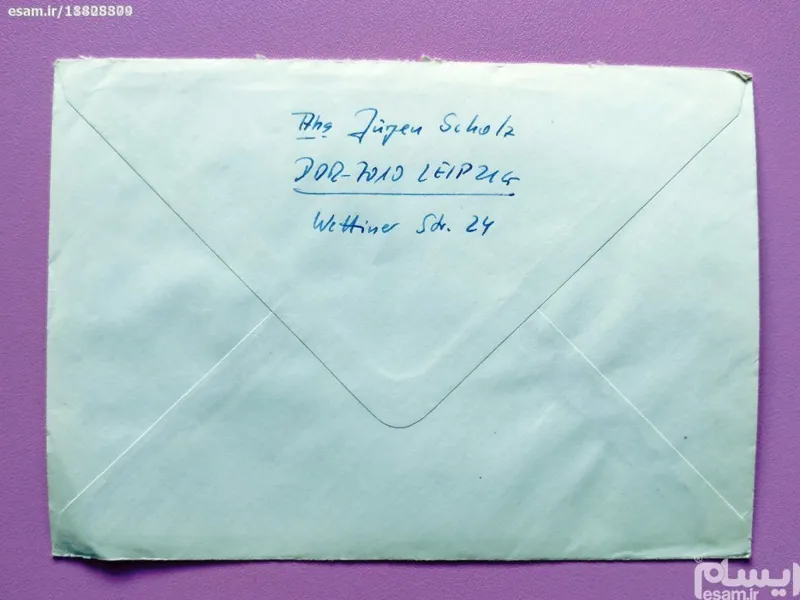 esam.ir/
Abs Jürgen Scholz
DDR-7010 LEIPZIG
Wettiner Str. 24
ایسام
esam.ir